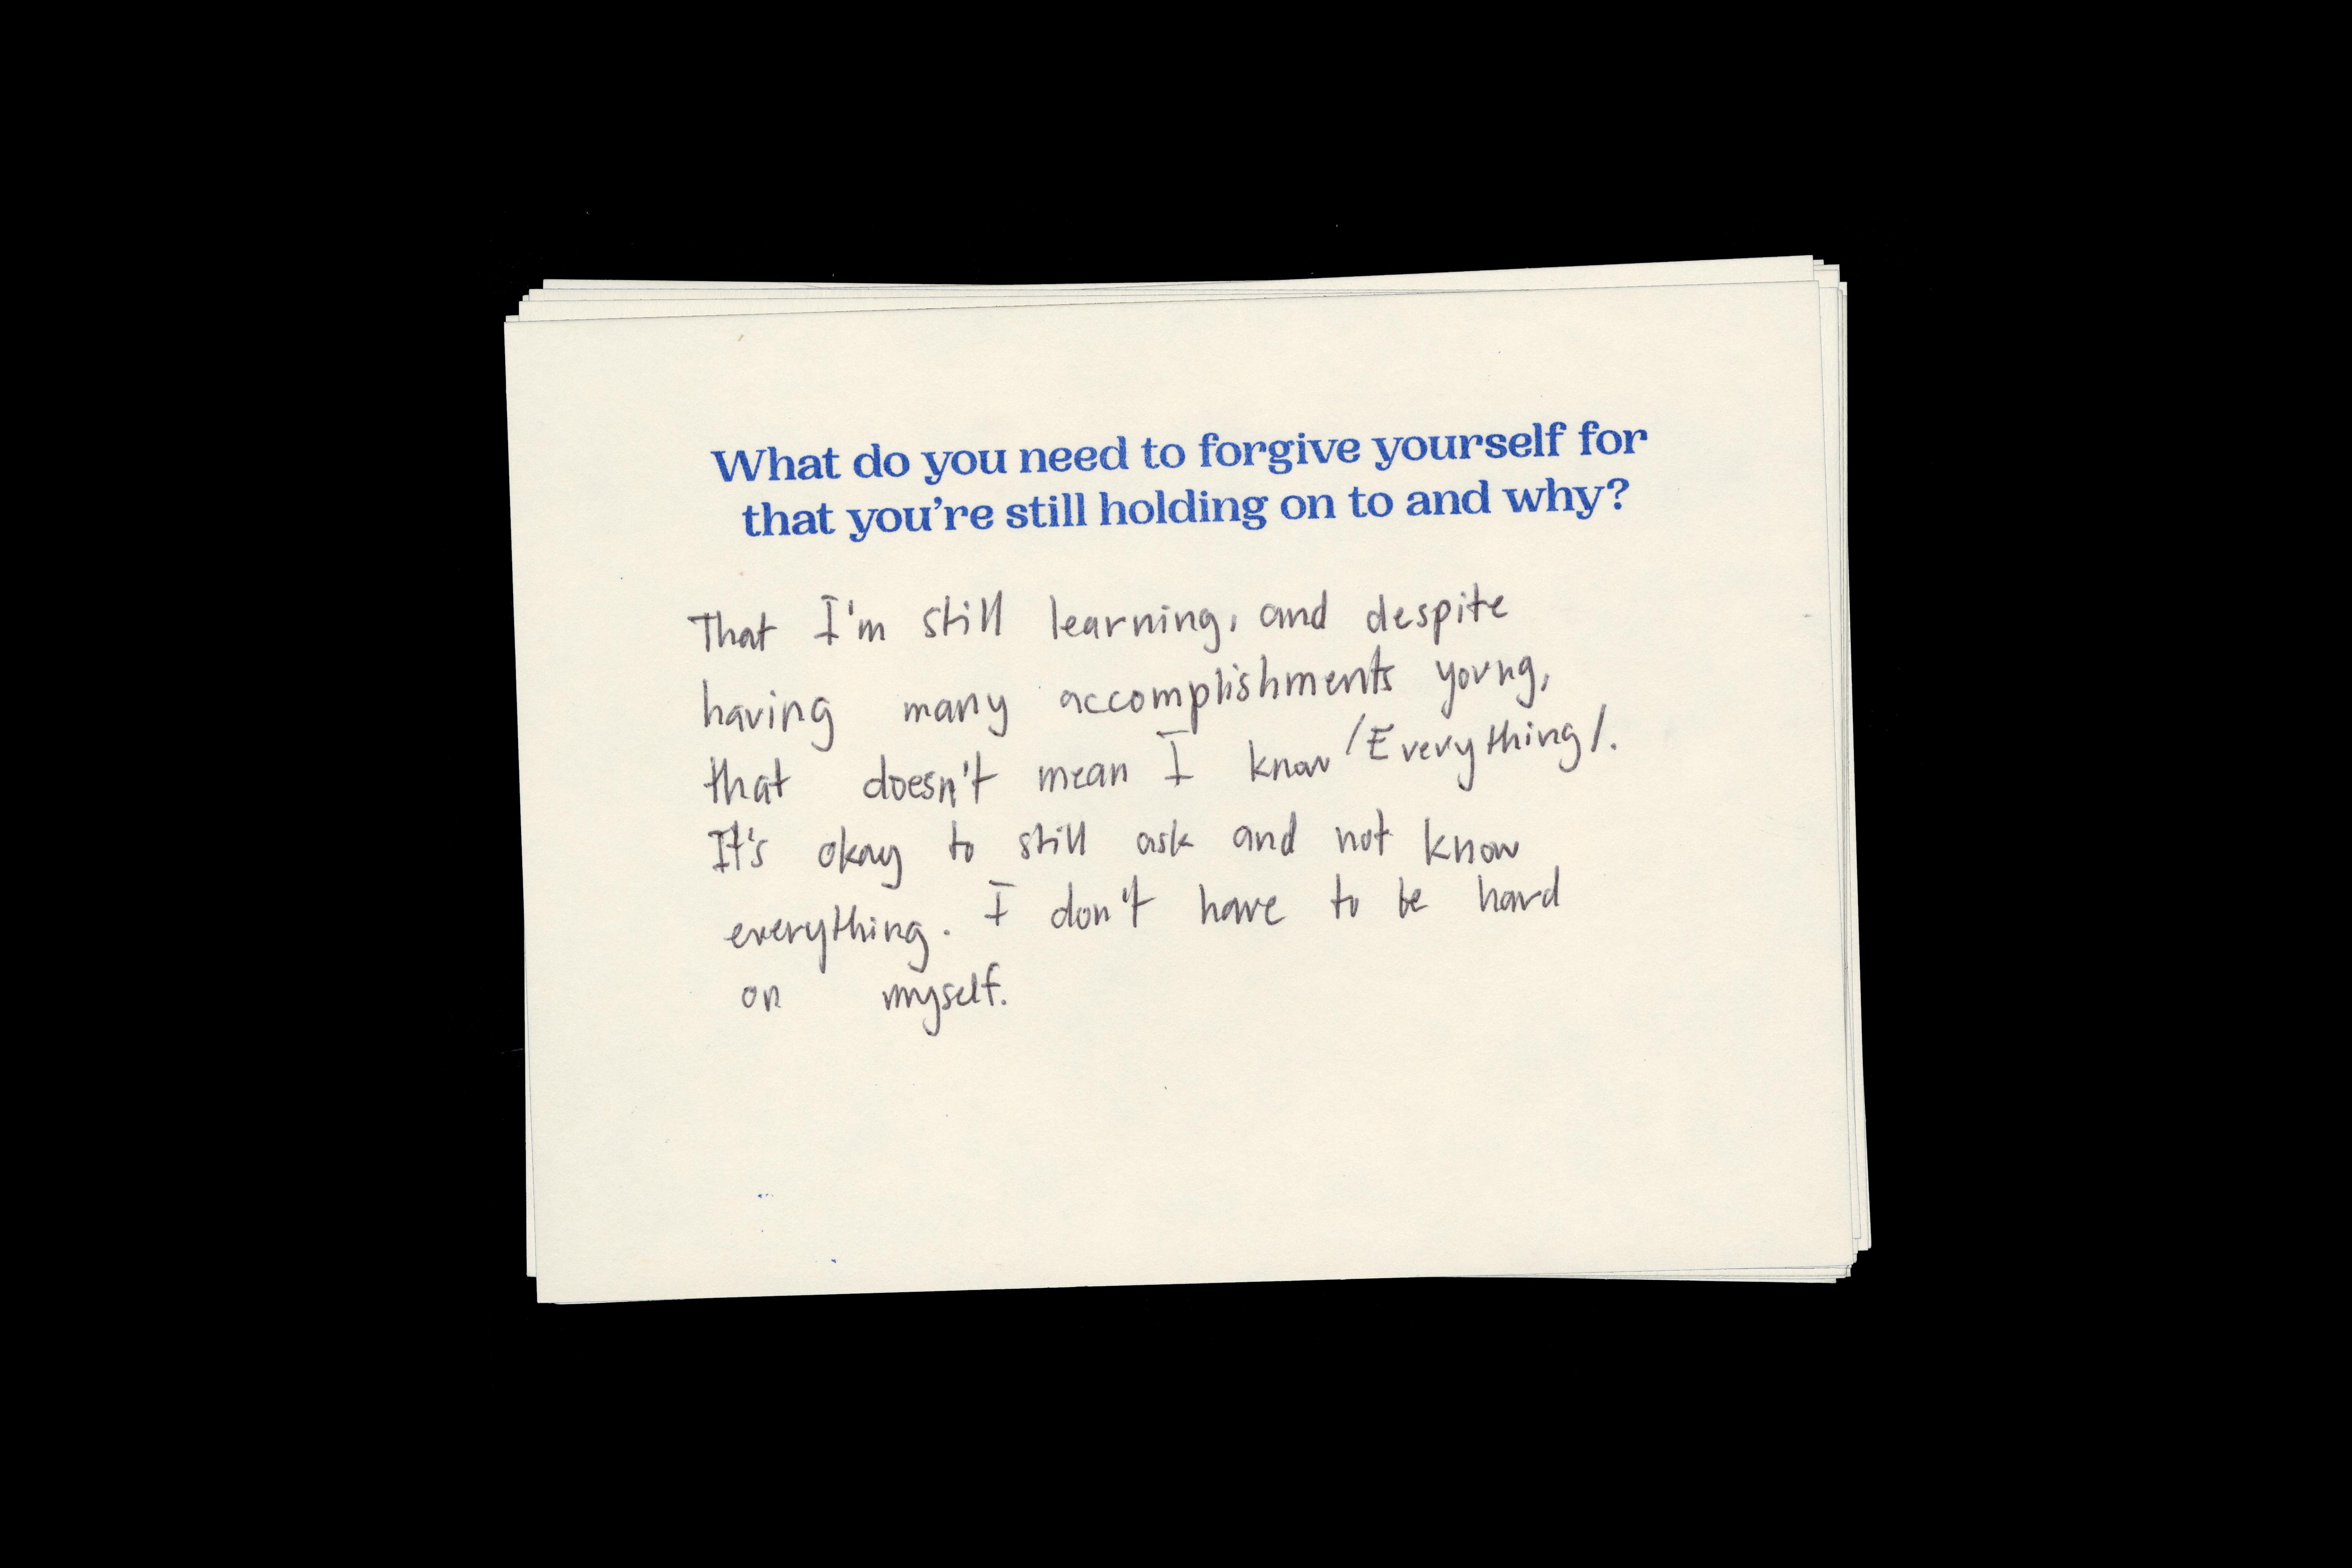 What do you need to forgive yourself for
that you're still holding on to and why?
That I'm still learning, and despite
having many accomplishments young,
that doesn't mean I know /Everything/.
It's okay to still ask and not know
everything. I don't have to be hard
on myself.